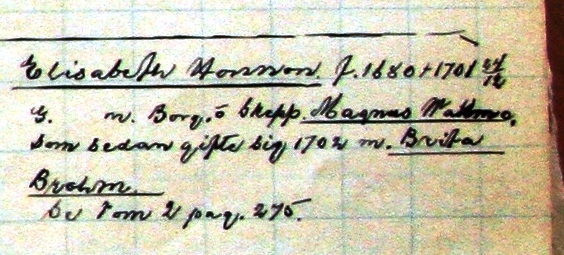 Elisabeth Nonnon. f. 1680 + 1701 24/12
G. m. Borg. o Skepp. Magnus Wallmo,
som sedan gifte sig 1702 m. Brita
Brohm.
Se Tom 2 pag. 275.